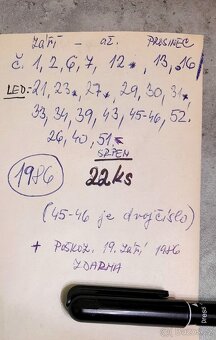 ZÁŘÍ - až. PROSINEC
č. 1, 2, 6, 7, 12*, 13, .16
LED: 21, 23*, 27*, 29, 30, 31*
33, 34, 39, 43, 45-46, 52.
26, 40, 51.
SRPEN
1986
22 ks
(45-46 je dvojčíslo)
+ POŠKOZ. 19. ZÁŘÍ 1986
ZDARMA
press